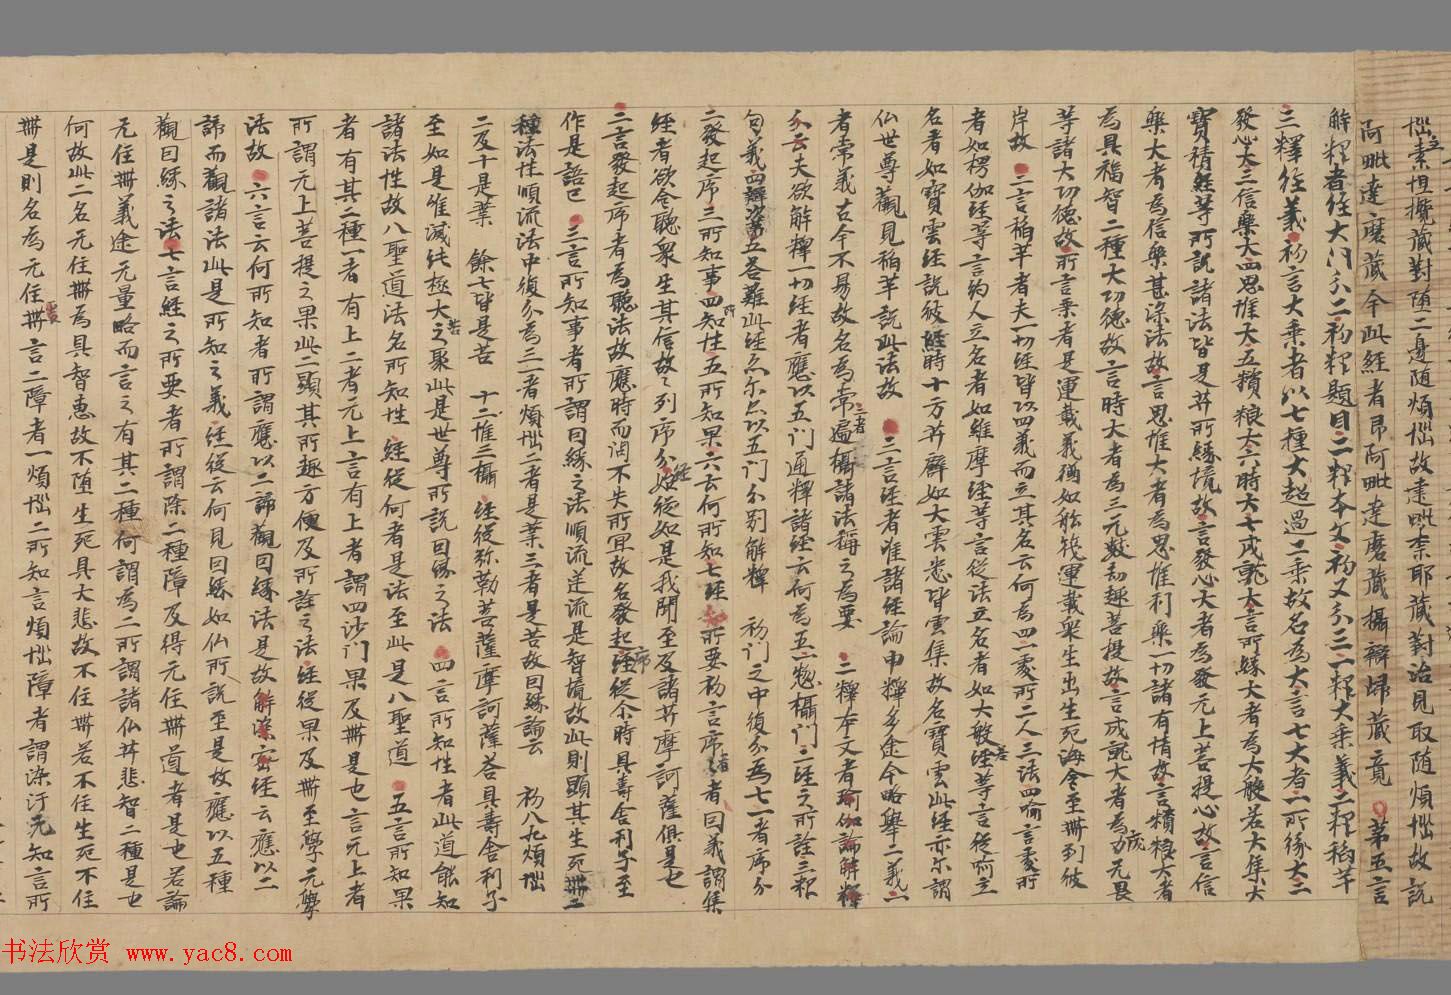 惱素怛攬藏對随二邊随煩惱故素毗柰耶藏對治見取随煩惱故說
阿毗達磨藏今此經者昂阿毗達磨藏攝辯歸藏竟 第五言
解釋者經大门分二初釋題目二釋本文初又分三一釋大乘義二釋稻芉
三釋經義初言大乘者以七種大超過二乘故名為大言七大者一所緣大二
發心大三信樂大四思惟大五積粮大六時大七成就大言所緣大者為大般若大集大
寶積經等所説諸法皆是菩所緣境故言發心大者為發无上菩提心故言信
樂大者為信樂甚深法故言思惟大者為思惟利樂一切諸有情故言積粮大者
為具福智二種大功德故言時大者為三无數劫趣菩提故言成就大者為成力无畏
等諸大功德故所言乘者是運載義猶如舩筏運載衆生出生死海令至卌到彼
岸故 二言稻芉者夫一切經皆以四義而立其名云何為四一處所二人三法四喻言處所
者如楞伽經等言約人立名者如維摩經等言從法立名者如大般若經等言從喻立
名者如寶雲經説彼經時十方菩薩如大雲悉皆雲集故名寶雲此經亦尔謂
仏世尊觀見稻芉説此法故 三言經者准諸經論中釋多途今略舉二義一
者常義古今不易故名為常二者遍攝諸法稱之為要 二釋本文者瑜伽論解釋
分云夫欲解釋一切經者應以五门通釋諸經云何為五一惣攝門二經之所詮三釋
句義四辯次第五荅難此經亦尔亦以五门分別解釋 初门之中復分為七一者序分
二發起序三所知事四所知性五所知果六云何所知七經之所要初言序者者因義謂集
經者欲令聽衆生其信故之列序分經從如是我聞至及諸菩摩訶薩俱是也
二言發起序者為聽法故應時而問不失所宜故名發起序經從尒時具壽舎利子至
作是語已 三言所知事者所謂因緣之法順流逆流是智境故此則顯其生死卌二
種法性順流法中復分為三一者煩惱二者是業三者是苦故因緣論云 初八九煩惱
二及十是業 餘七皆是苦 十二惟三攝 經從弥勒菩薩摩訶薩荅具壽舎利子
至如是唯滅純極大苦之聚此是世尊所説因緣之法 四言所知性者此道能知
諸法性故八聖道法名所知性 經從何者是法至此是八聖道 五言所知果
者有其二種一者有上二者无上言有上者謂四沙门果及卌是也言无上者
所謂无上菩提之果此二顯其所趣方便及所詮之法經從果及卌至學无學
法故 六言云何所知者所謂應以二諦觀因緣法是故解深密經云應以二
諦而觀諸法此是所知之義經從云何見因緣如仏所説至是故應以五種
觀因緣之法七言經之所要者所謂除二種障及得无住卌道者是也若論
无住卌義途无量略而言之有其二種何謂為二所謂諸仏菩悲智二種是也
何故此二名无住卌為具智惠故不堕生死具大悲故不住卌若不住生死不住
卌是則名為无住卌 言二障者一煩惱二所知言煩惱障者謂染汙无知言所
书法欣赏 www.yac8.com